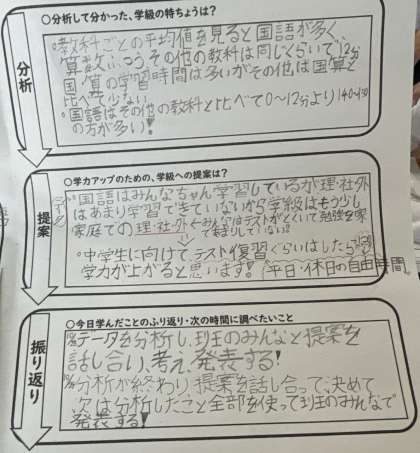 ○分析して分かった、学級の特ちょうは?
分析
・教科ごとの平均値を見ると国語が多く、
算数ふつうその他の教科は同じくらいで12分
国・算の学習時間は多いがその他は国算と
比べて少ない
・国語はその他の教科と比べて0~12分より140~150
の方が多い!
○学力アップのための、学級への提案は?
提案
国語はみんなちゃん学習しているが理・社外
はあまり学習できていないから学級はもう少し
家庭での理・社外
・中学生に向けてテスト復習くらいはしたら
学力が上がると思います! 平日・休日の自由時間
○今日学んだことのふり返り・次の時間に調べたいこと
振り返り
データを分析し、班のみんなと提案を
話し合い、考え、発表する!
分析が終わり、提案を話し合って、決めて
次は分析したこと全部を使って班のみんなで
発表する!